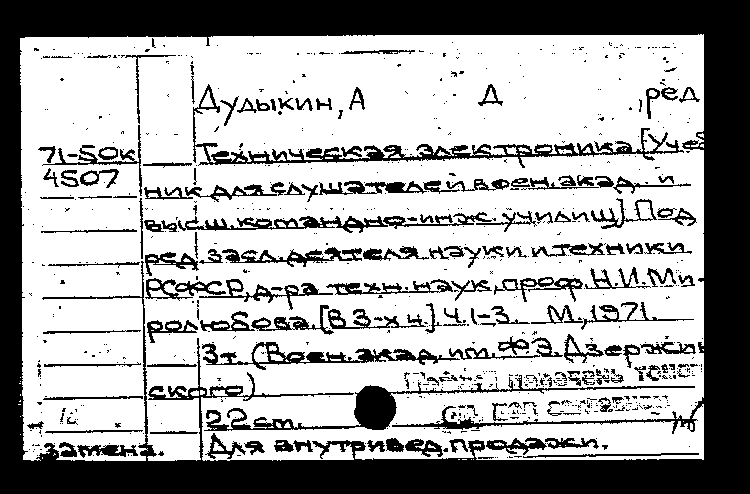 Дудыкин, А Д , ред
71-50к Техническая электроника. [Учеб
4507
ник для слушателей воен. акад. и
высш. командно-инж. училищ]. Под
ред. засл. деятеля науки и техники
РСФСР, д-ра техн. наук, проф. Н.И. Ми-
ролюбова. [В 3-х ч]. Ч. 1-3. М., 1971.
3т. (Воен. акад. им. Ф.Э. Дзержин
ского).
Полный перечень
22 см. См. под заглавием
замена. Для внутривед. продажи.